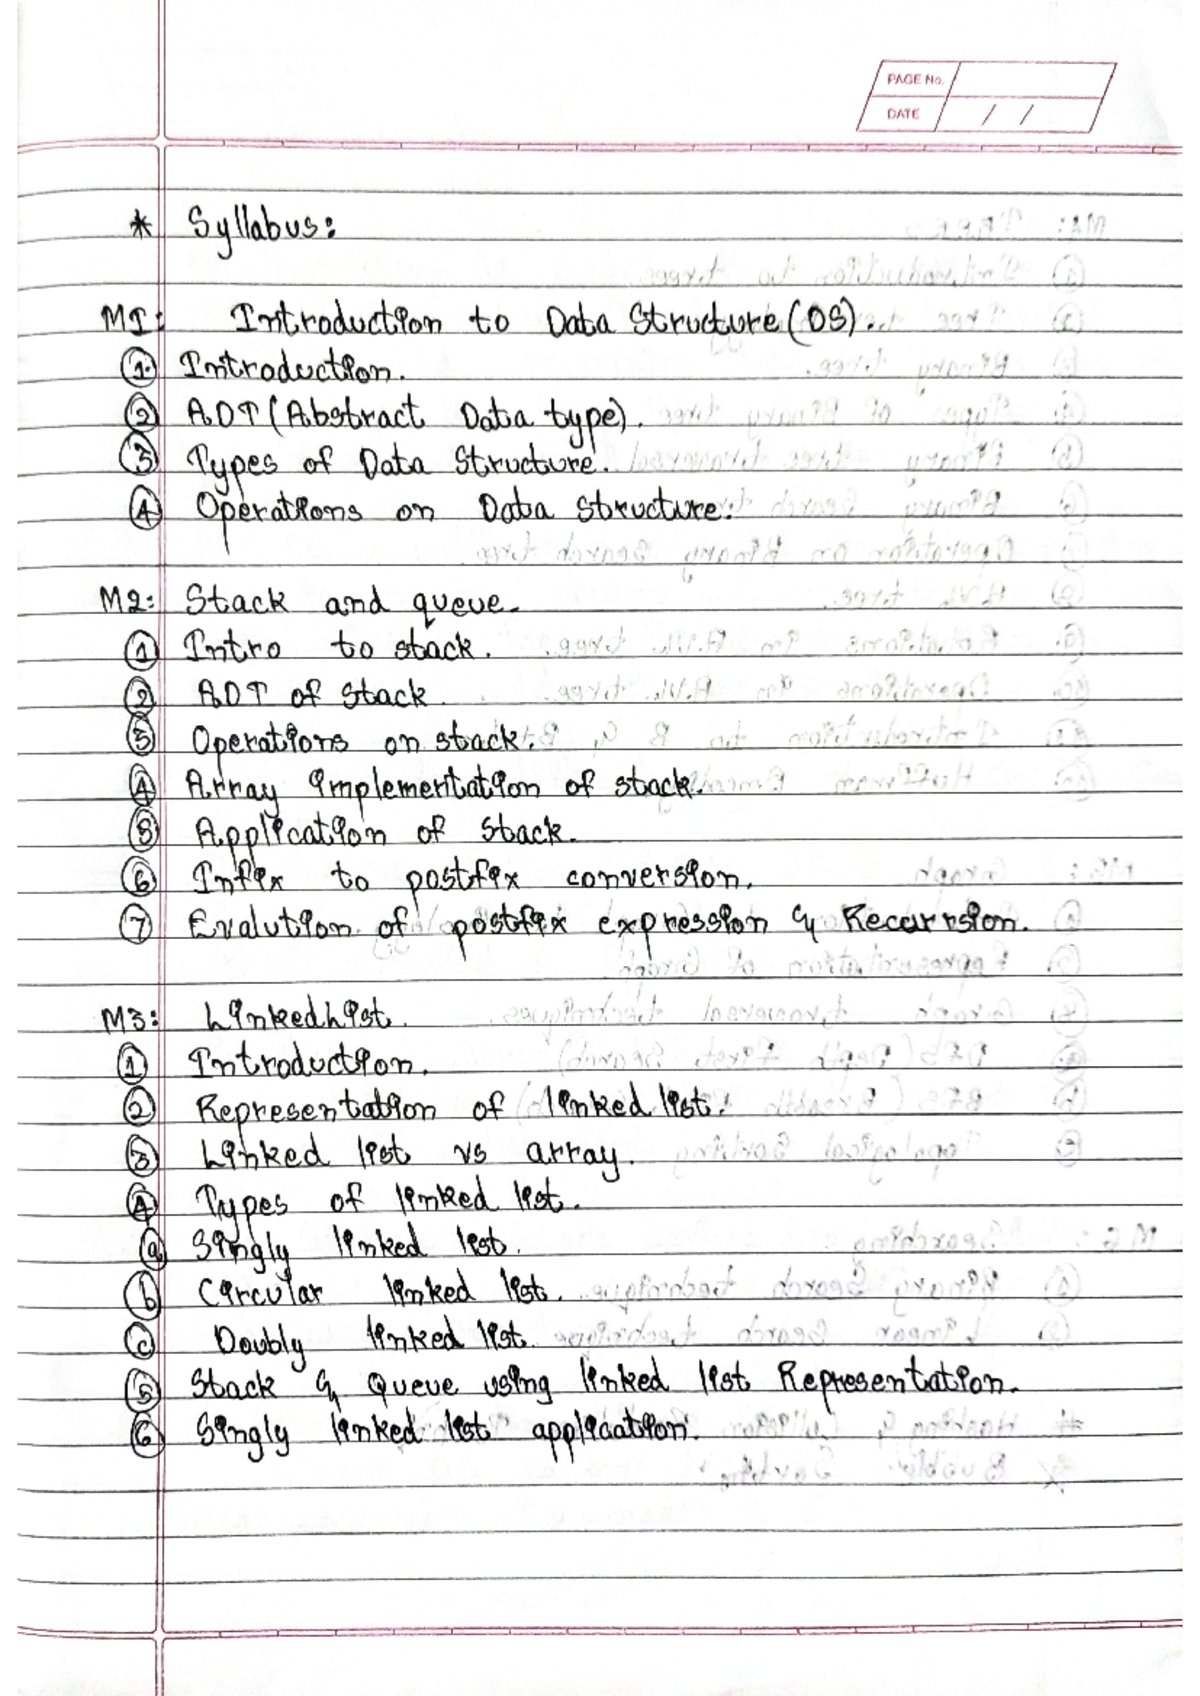 PAGE No.
DATE / /
* Syllabus:
M1: Introduction to Data Structure (DS).
1. Introduction.
2 ADT (Abstract Data type).
3 Types of Data Structure.
4 Operations on Data structure.
M2: Stack and queue.
1 Intro to stack.
2 ADT of stack.
3 Operations on stack.
4 Array implementation of stack.
5 Application of stack.
6 Infix to postfix conversion.
7 Evalution of postfix expression & Recurrsion.
M3: Linked List.
1 Introduction.
2 Representation of linked list.
3 Linked list vs array.
4 Types of linked list.
a Singly linked list.
b Circular linked list.
c Doubly linked list.
5 Stack & Queue using linked list Representation.
6 Singly linked list application.